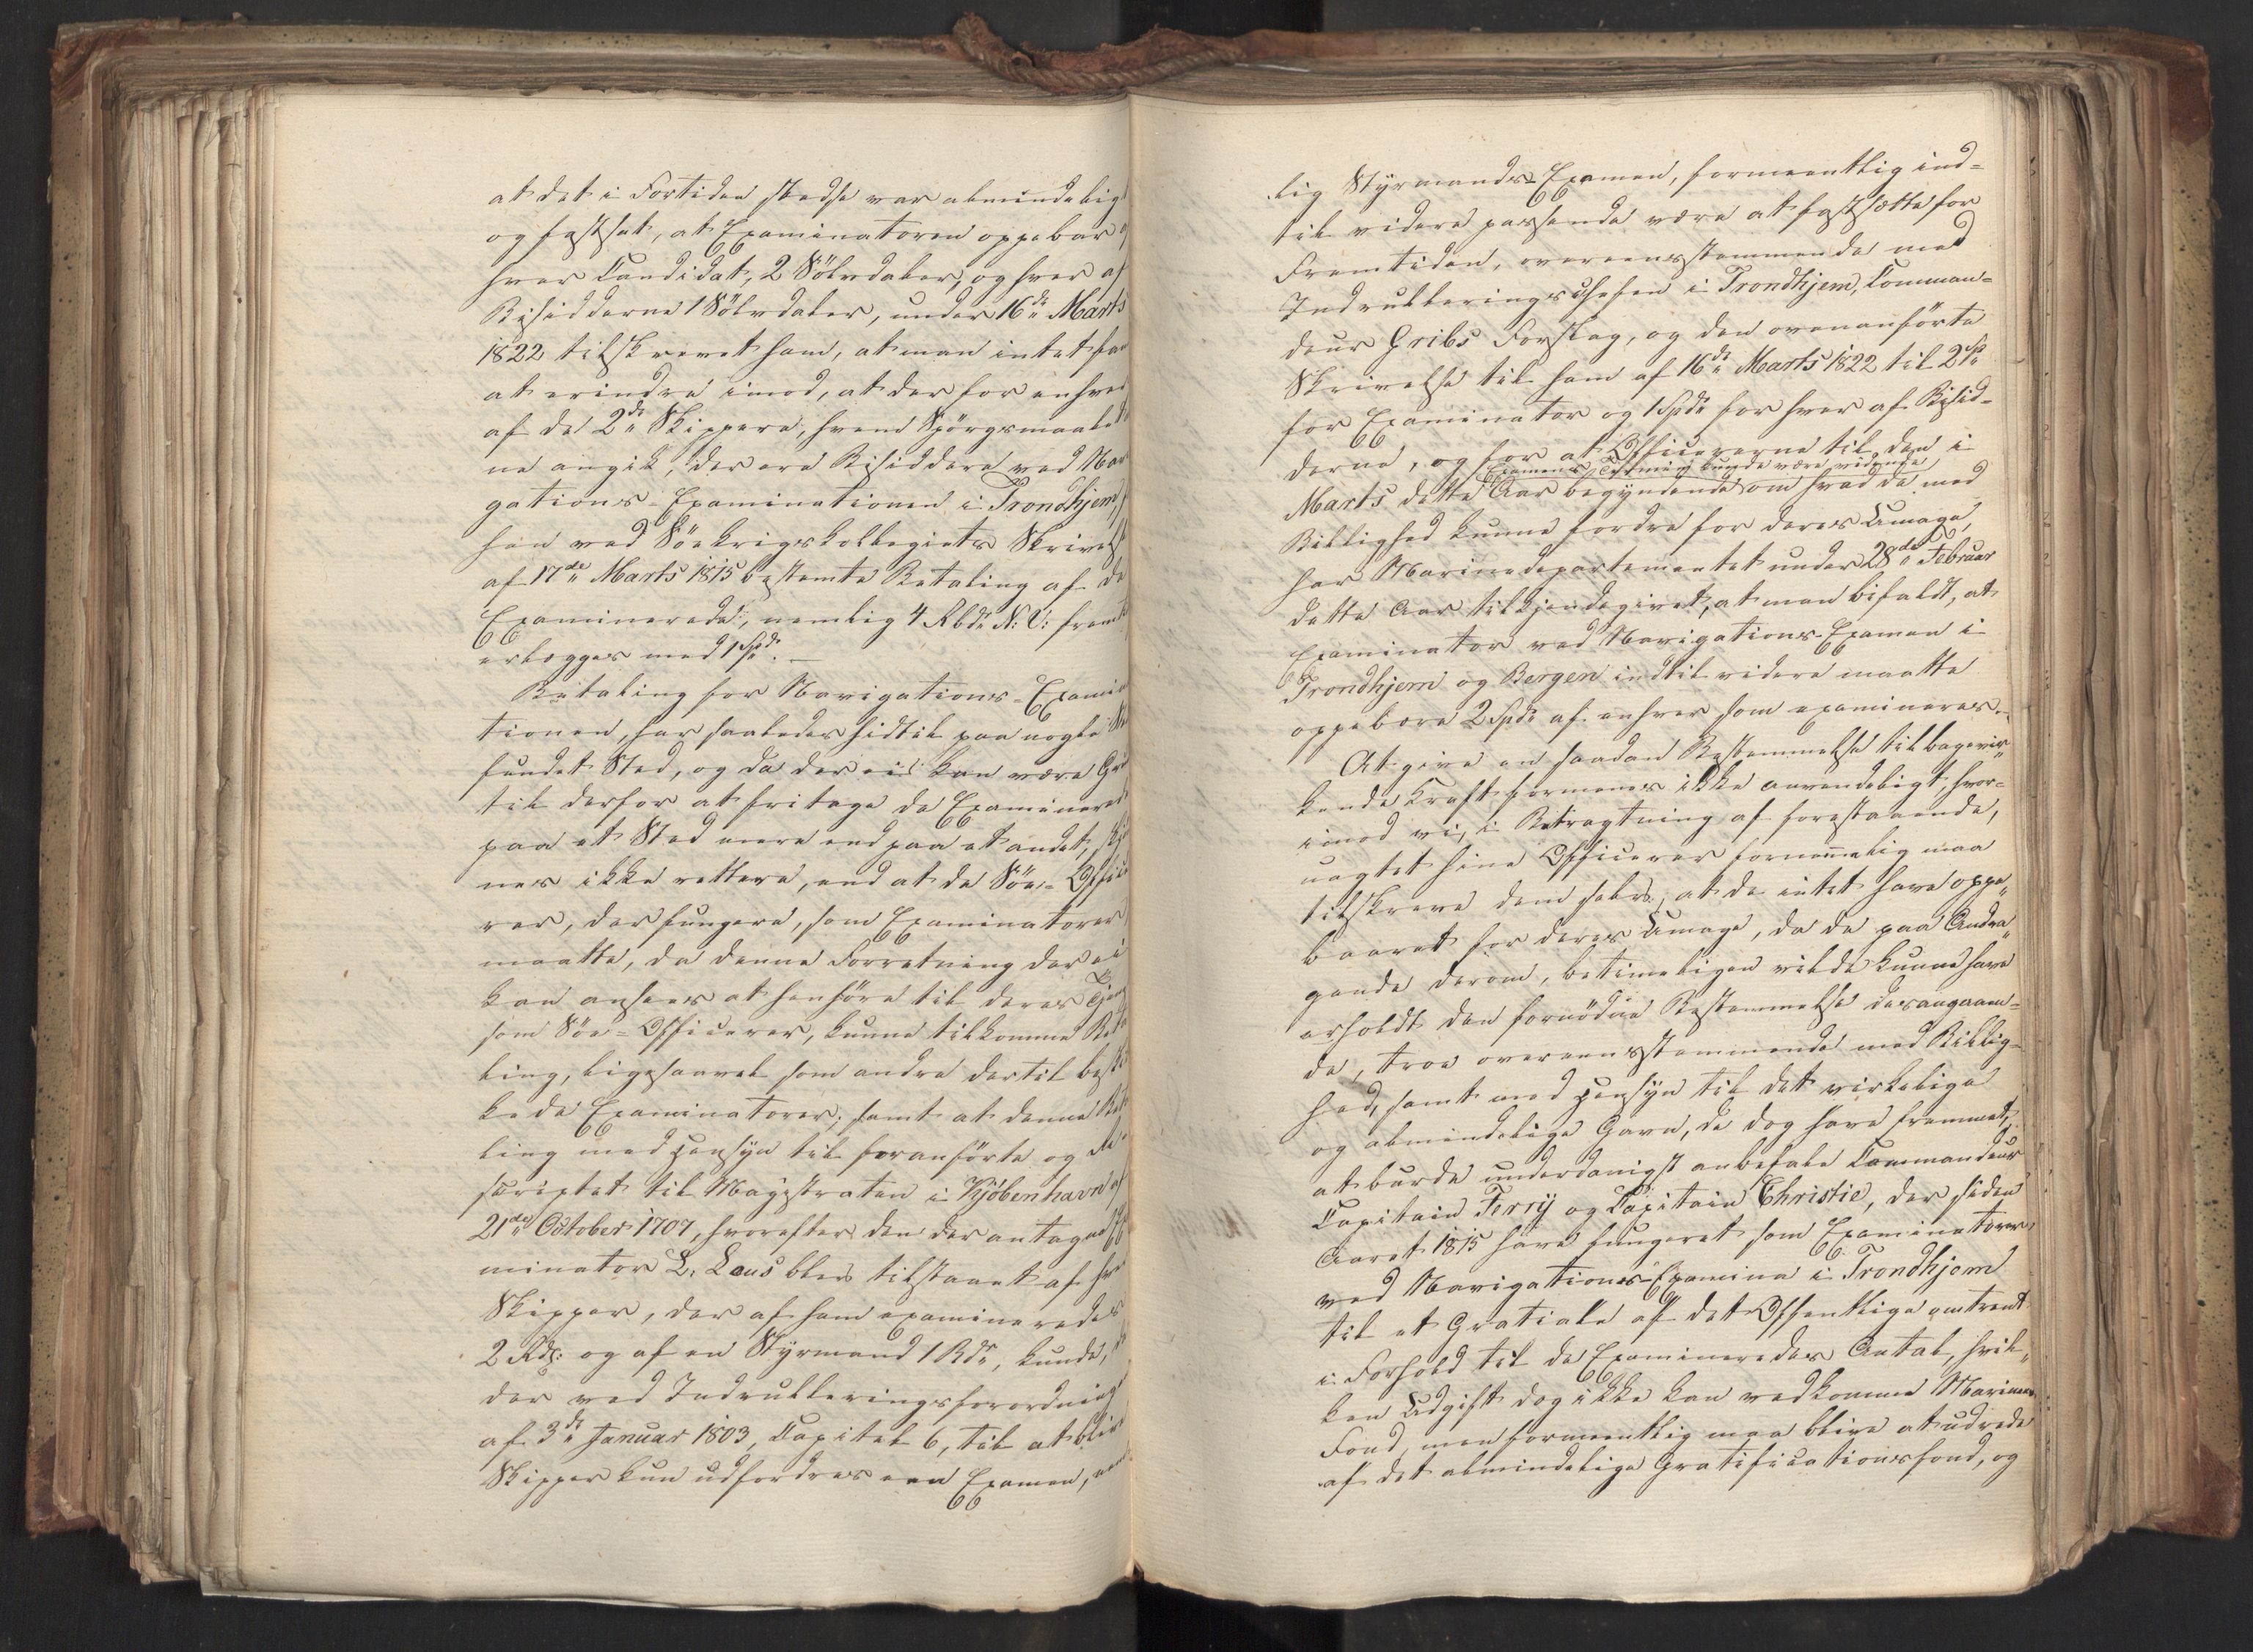 at det i Fortiden stedse var almindelig
og fastsat, at Examinatoren oppebar
hver Candidat, 2 Sölvdaler, og hver af
Bisidderne 1 Sölvdaler, under 16de Marts
1822 tilskrevet ham, at man intet fan
at erindre imod, at der for enhver
af de 2de Skippere, hvem Spörgsmaale
ne angik, der ere Bisiddere ved Nav
gations-Examinationen i Trondhjem,
hen ved Söekrigskollegiets Skrivels
af 17de Marts 1815 bestemte Betaling af de
Examinerede, nemlig 4 Rbdr N: V: fremt
erlægges med 1 Spd. —
Betaling for Navigations-Examina
tionen, har saaledes hidtil paa nogle
fundet Sted, og da der ei kan være Gru
til derfor at fritage de Examinerede
paa et Sted mere end paa et andet, skjö
nes ikke rettere, end at de Söe-Offic
rer, der fungere, som Examinatorer
maatte, da denne Forretning der ei
kan ansees at henhöre til deres Tjen
som Söe-Officerer, kunne tilkomme Beta
ling, ligesaavel som andre dertil beski
kede Examinatorer; samt at denne Bet
ling med Hensyn til foranförte og
scriptet til Magistraten i Kjöbenhavn af
21de October 1707, hvorefter den der antagne Ex
minator L. Laus blev tilstaaet af hver
Skipper, der af ham examineredes
2 Rdl: og af en Styrmand 1 Rdr, kunde,
der ved Indrulleringsforordning
af 3de Januar 1803, Capitel 6, til at blive
Skipper kun udfordres een Examen,
lig Styrmands-Examen, formeentlig ind-
til videre passende være at fastsætte for
Fremtiden, overeensstemmende med
Indrulleringschefen i Trondhjem, Comman-
deur Gribs Forslag, og den ovenanförte
Skrivelse til ham af 16de Marts 1822 til 2 Sp
for Examinator og 1 Spdr for hver af Bisid-
derne, og for at Officererne til den i
Examens Termin kunde være vidende
Marts dette Aar begyndende om hvad de med
Billighed kunne fordre for deres Umage,
har Marinedepartementet under 28de Februar
dette Aar tilkjendegivet, at man bifaldt, at
Examinator ved Navigations-Examen i
Trondhjem og Bergen indtil videre maatte
oppebære 2 Spdr af enhver som examineres.
At give en saadan Bestemmelse tilbagevir-
kende Kraft formenes ikke anvendeligt, hvor-
imod vi, i Betragtning af forestaaende,
uagtet hine Officerer fornemmelig maa
tilskrive dem selv, at de intet have oppe-
baaret for deres Umage, da de paa Andra-
gende derom, betimeligen vilde kunne have
erholdt den fornödne Bestemmelse desangaaen-
de, troe overeensstemmende med Billig-
hed, samt med Hensyn til det virkelige
og almindelige Gavn, de dog have fremmet,
at burde underdanigst anbefale Commandeur
Capitain Ferry og Capitain Christie, der siden
Aaret 1815 have fungeret som Examinatorer
ved Navigations-Examina i Trondhjem
til et Gratiale af det Offentlige omtrent
i Forhold til de Examineredes Antal, hvil-
ken Udgift dog ikke kan vedkomme Marinens
Fond, men formeentlig maa blive at udrede
af det almindelige Gratificationsfond, og